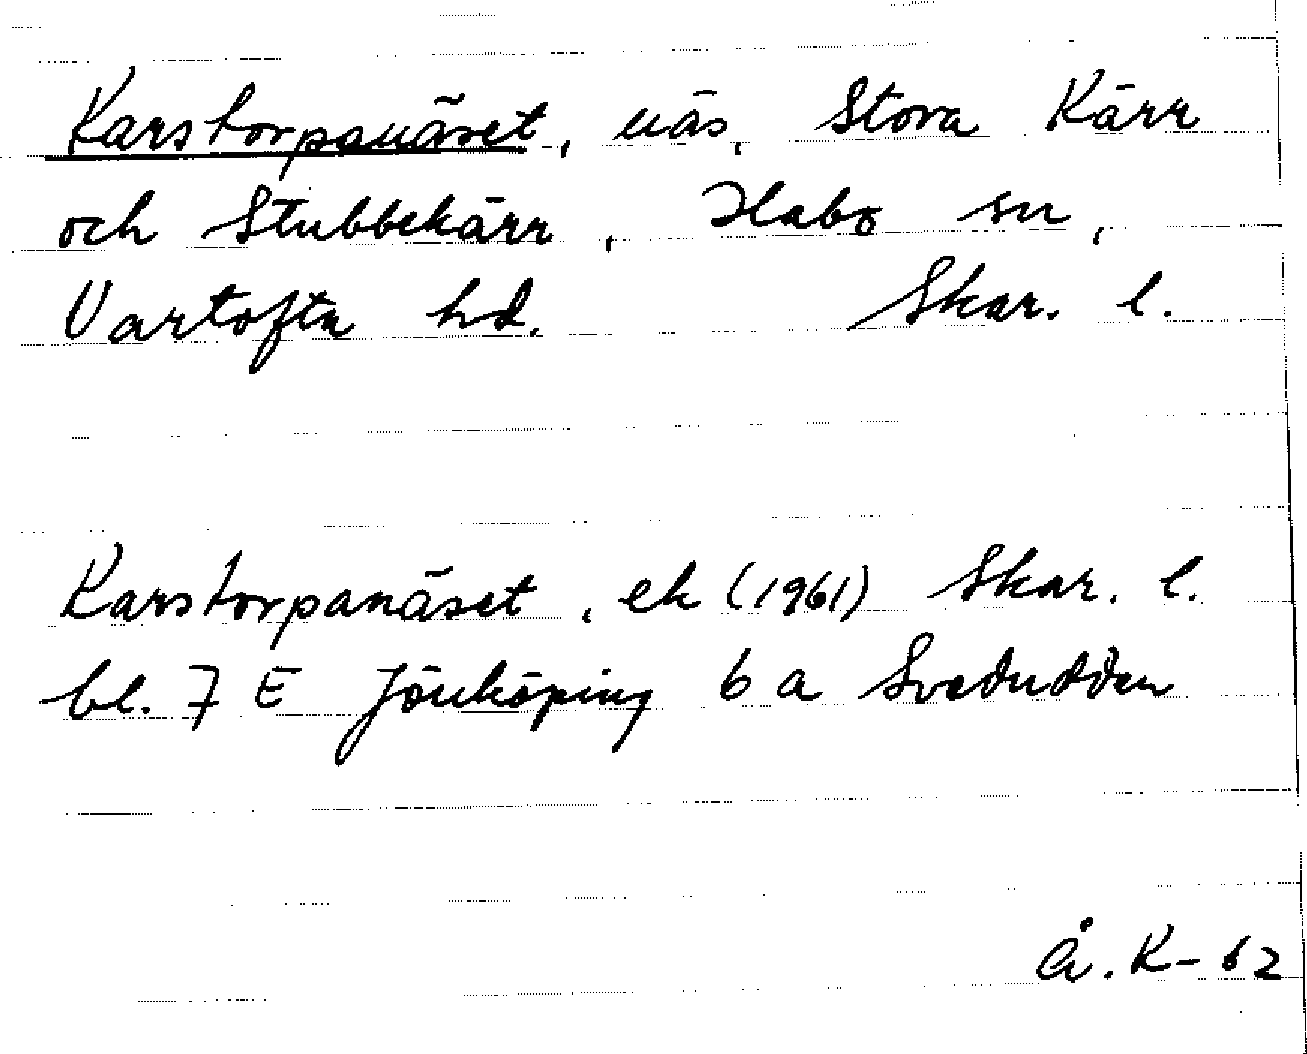 Karstorpanäset, näs, Stora Kärr
och Stubbekärr, Habo sn,
Vartofta hd. Skar. l.
Karstorpanäset, ek (1961) Skar. l.
bl. 7 E Jönköping 6 a Svedudden
Å. K-62